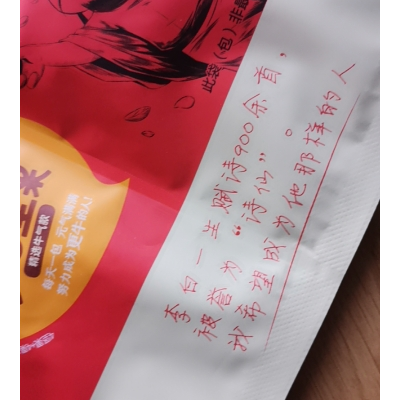 此袋(包)非
坚果
精选牛气款
每天一包 元气满满
努力成为更牛的人!
李白一生赋诗900余首,
被誉为“诗仙”。
我希望成为他那样的人